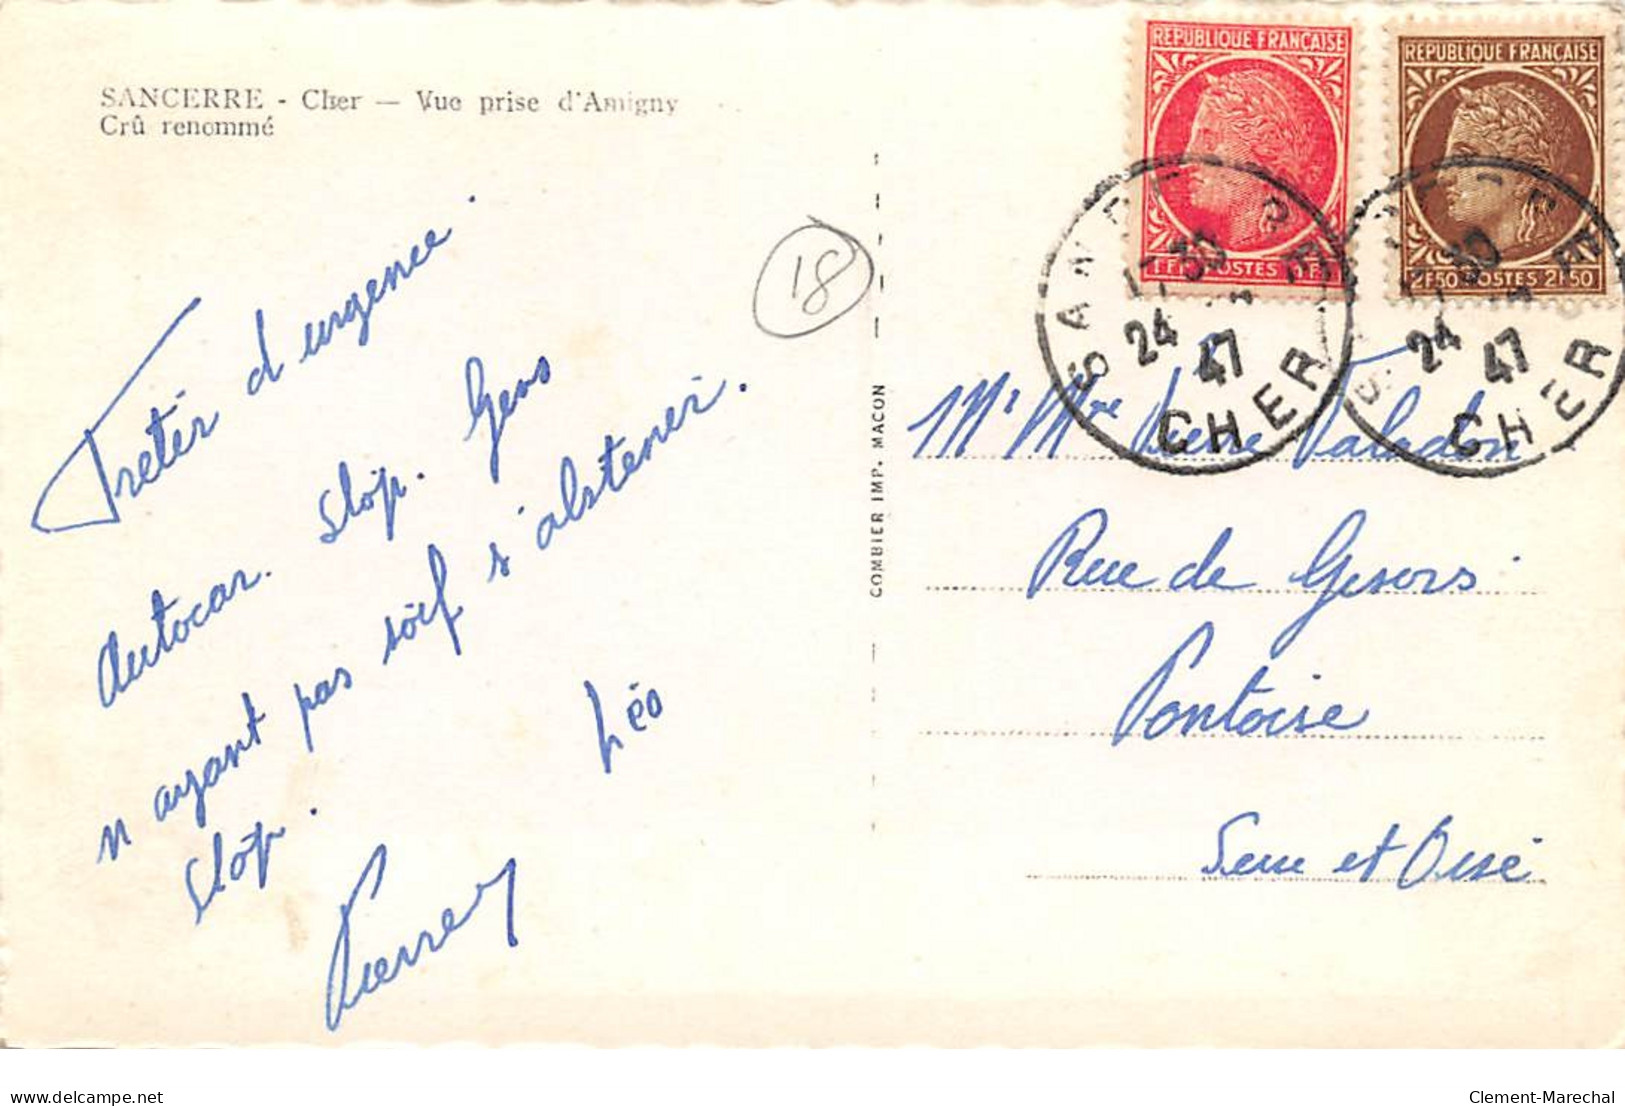 SANCERRE - Cher — Vue prise d'Amigny
Crû renommé
Freter d'urgence
autocar. Stop. Gens
n'ayant pas soif s'abstenir.
Stop.
Léo
Pierre
18
COMBIER IMP. MACON
REPUBLIQUE FRANÇAISE
1F POSTES 1F
REPUBLIQUE FRANÇAISE
2F50 POSTES 2F50
SANCERRE
30
24 - 4
47
CHER
30
24 - 4
47
CHER
Mr Mme Pierre Valadon
Rue de Gisors
Pontoise
Seine et Oise
delcampe.net
Clement-Marechal